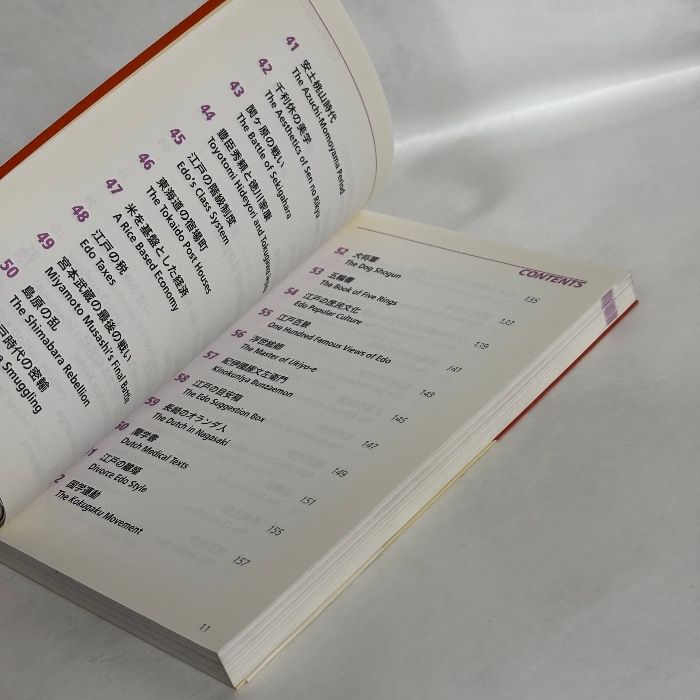 41 安土桃山時代
The Azuchi-Momoyama Period
42 千利休の美学
The Aesthetics of Sen no Rikyu
43 関ヶ原の戦い
The Battle of Sekigahara
44 豊臣秀頼と徳川家康
Toyotomi Hideyori and Tokugawa
45 江戸の階級制度
Edo's Class System
46 東海道の宿場町
The Tokaido Post Houses
47 米を基盤とした経済
A Rice Based Economy
48 江戸の税
Edo Taxes
49 宮本武蔵の最後の戦い
Miyamoto Musashi's Final Battle
50 島原の乱
The Shimabara Rebellion
戸時代の密輸
Smuggling
CONTENTS
52 犬将軍
The Dog Shogun
135
53 五輪書
The Book of Five Rings
137
54 江戸の庶民文化
Edo Popular Culture
139
55 江戸百景
One Hundred Famous Views of Edo
141
56 浮世絵師
The Master of Ukiyo-e
143
57 紀伊國屋文左衛門
Kinokuniya Bunzaemon
145
58 江戸の目安箱
The Edo Suggestion Box
147
59 長崎のオランダ人
The Dutch in Nagasaki
149
60 蘭学書
Dutch Medical Texts
151
1 江戸の離婚
Divorce Edo Style
155
2 国学運動
The Kokugaku Movement
157
11